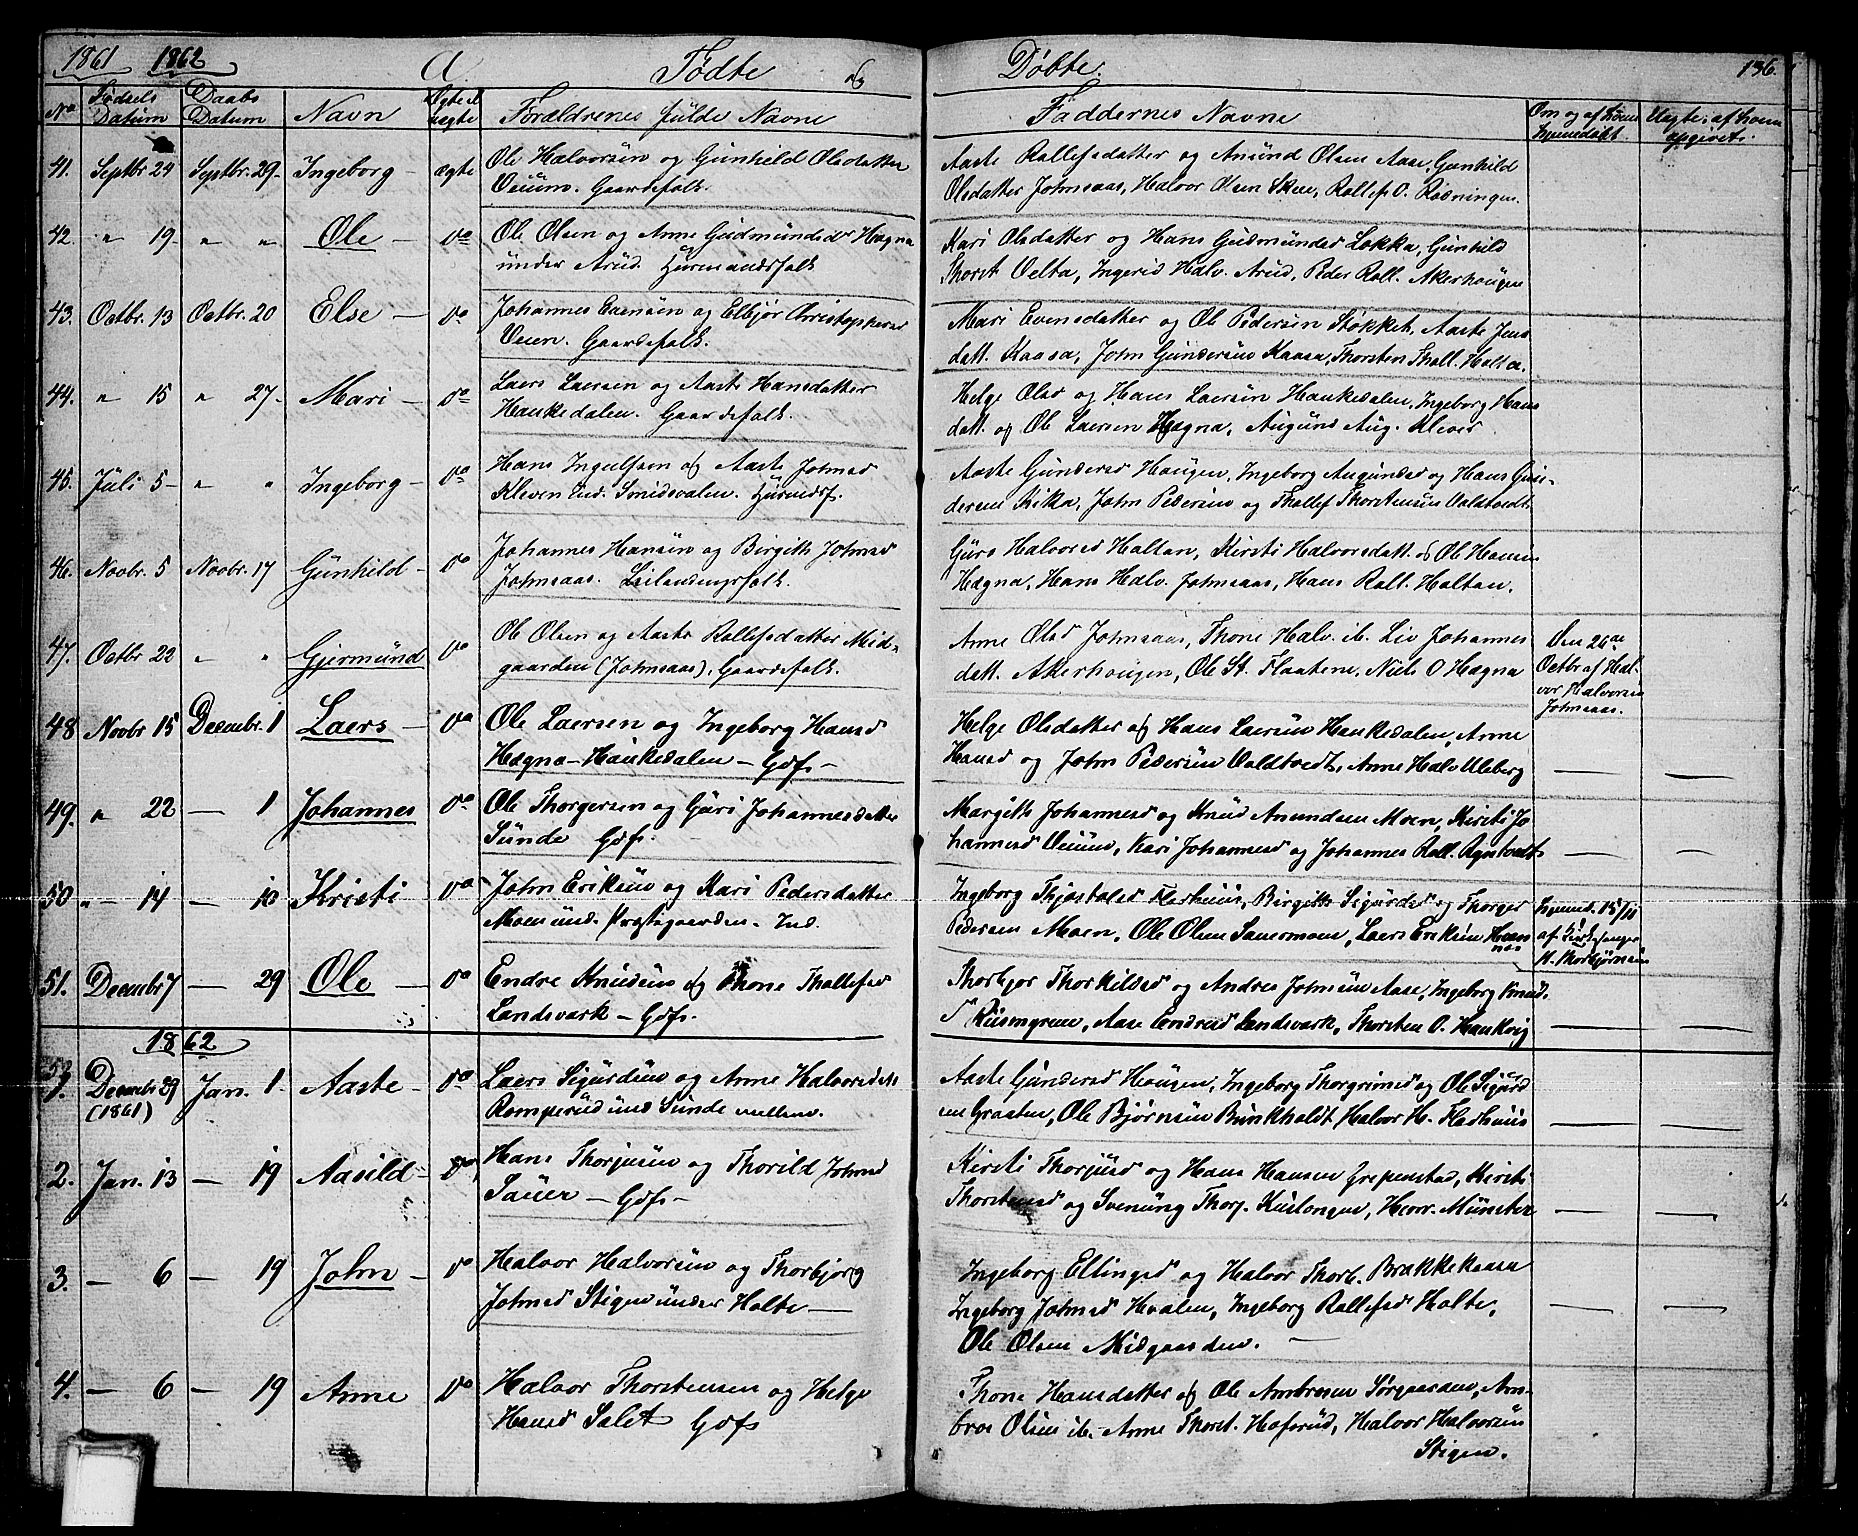 1861 1862 A. Fødte og Døbte. 136.
No Fødsels Datum Daabs Datum Navn Ægte el. uægte Forældrenes fulde Navne Faddernes Navne Om og af hvem hjemmedøbt. Uegte: af hvem opgivet.
41. Septbr 24 Septbr. 29. Ingeborg - ægte Ole Halvorsen og Gunhild Olsdatter
Gaardefolk.
Aaste Rollefsdatter og Amund Olsen Aase, Gunhild
Olsdatter Johnsaas, Halvor Olsen Skeie, Rollef O. Rødningen.
42. " 19 " " Ole - do Ole Olsen og Anne Gudmundsd Hægna
under Aarud. Huusmandsfolk
Kari Olsdatter og Hans Gudmundsd Løkka, Gunhild
Thorst. Oelta, Ingerid Halv. Arud, Peder Roll. Akerhougen
43. Octbr. 13 Octbr. 20 Else - do Johannes Evensen og Elbjør Christophersd
Veien. Gaardefolk.
Mari Evensdatter og Ole Pedersen Støkket, Aaste Jens
datt. Kaasa, John Gundersen Kaasa, Thorsten Tholl. Holta.
44. " 15 " 27. Mari - do Laers Laersen og Aaste Hansdatter
Haukedalen. Gaardefolk.
Helge Olsd og Hans Laersen Haukedalen, Ingeborg Hans
datt. og Ole Laersen Hægna, Augund Aug. Kleven
45. Juli 5 - " " Ingeborg - do Hans Ingulfsen og Aaste Johnsd
Kleven Ind. Smidsvalen. Huusmdsf.
Aaste Gundersd Haugen, Ingeborg Augundsd og Hans Gun-
dersen Kika, John Pedersen og Thollef Thorstensen Valdtvedt
46. Novbr. 5 Novbr. 17 Gunhild - do Johannes Hansen og Birgith Johnsd
Johnsaas. Leilændingsfolk.
Guro Halvorsd Holtan, Kirsti Halvorsdatt. og Ole Hansen
Hægna, Hans Halv. Johnsaas, Hans Roll. Holtan.
47. Octbr 22 " " Gjermund do Ole Olsen og Aaste Rollefsdatter Mid-
gaarden (Johnsaas). Gaardefolk.
Anne Olsd Johnsaas, Thone Halv. ib. Liv Johannes
datt. Akerhougen, Ole St. Flaatene, Niels O Hægna
Den 26de
Octbr af Hal-
vor Halvorsen
Johnsaas.
48 Novbr 15 Decembr. 1 Laers - do Ole Laersen og Ingeborg Hansd
Hægna - Haukedalen - Gdfs -
Helge Olsdatter og Hans Laersen Haukedalen, Anne
Hansd og John Pedersen Valdtvedt, Anne Halv Uleberg
49. " 22 — 1 Johannes do Ole Thorgersen og Guri Johannesdatter
Sunde Gdfs.
Margith Johannesd og Knud Amundsen Moen, Kirsti Jo
hannesd Veium, Kari Johannesd og Johannes Roll.
50 " — 14 — 10 Kristi do John Eriksen og Kari Pedersdatter
Moen und. Præstegaarden. Ind.
Ingeborg Thjostolsd Flothuus, Birgith Sigurdsd og Thorger
Pedersen Moen, Ole Olsen Sauermoen, Laers Eriksen
Hjemd. 15/11
af Kirkesanger
H. Thorbjørnsen
51. Decembr 7 — 29 Ole - do Endre Knudsen og Thone Thollefsd
Landsvark - Gdfs.
Thorbjør Thorkildsd og Andres Johnsen Aase, Ingeborg Knud.
Aase Endresd Landsvark, Thorsten O. Haukvig
1862
52.
1. Decembr 29 (1861) Jan. 1. Aaste - do Laers Sigurdsen og Anne Halvorsdatt
Romperud und Sunde mellem.
Aaste Gundersd Haugen, Ingeborg Thorgrimsd og Ole Sigurd
sen Graaten, Ole Bjørnsen Bunkholdt, Halvor H. Flothuus
2. Jan. 13 — 19 Aasild - do Hans Thorjusen og Thorild Johnsd
Sauer - Gdfs -
Kirsti Thorjusd og Hans Hansen Grepenstad, Kirsti
Thorstensd og Svenung Thorj. Kuslongen, Herr. Münster
3. — 6 — 19 John - do Halvor Halvorsen og Thorbjørg
Johnsd Stigen under Holte —
Ingeborg Ellingsd og Halvor Thorb. Brakkekaasa
Ingeborg Johnsd Hvalen, Ingeborg Rollefsd Holte,
Ole Olsen Midgaarden. —
4. — 6 — 19 Anne do Halvor Thorstensen og Helge
Hansd Salet Gdfs
Thone Hansdatter og Ole Ambrosen Sørgaarden, Am-
bros Olsen ib. Anne Thorst. Hoferud, Halvor Halvorsen
Stigen.